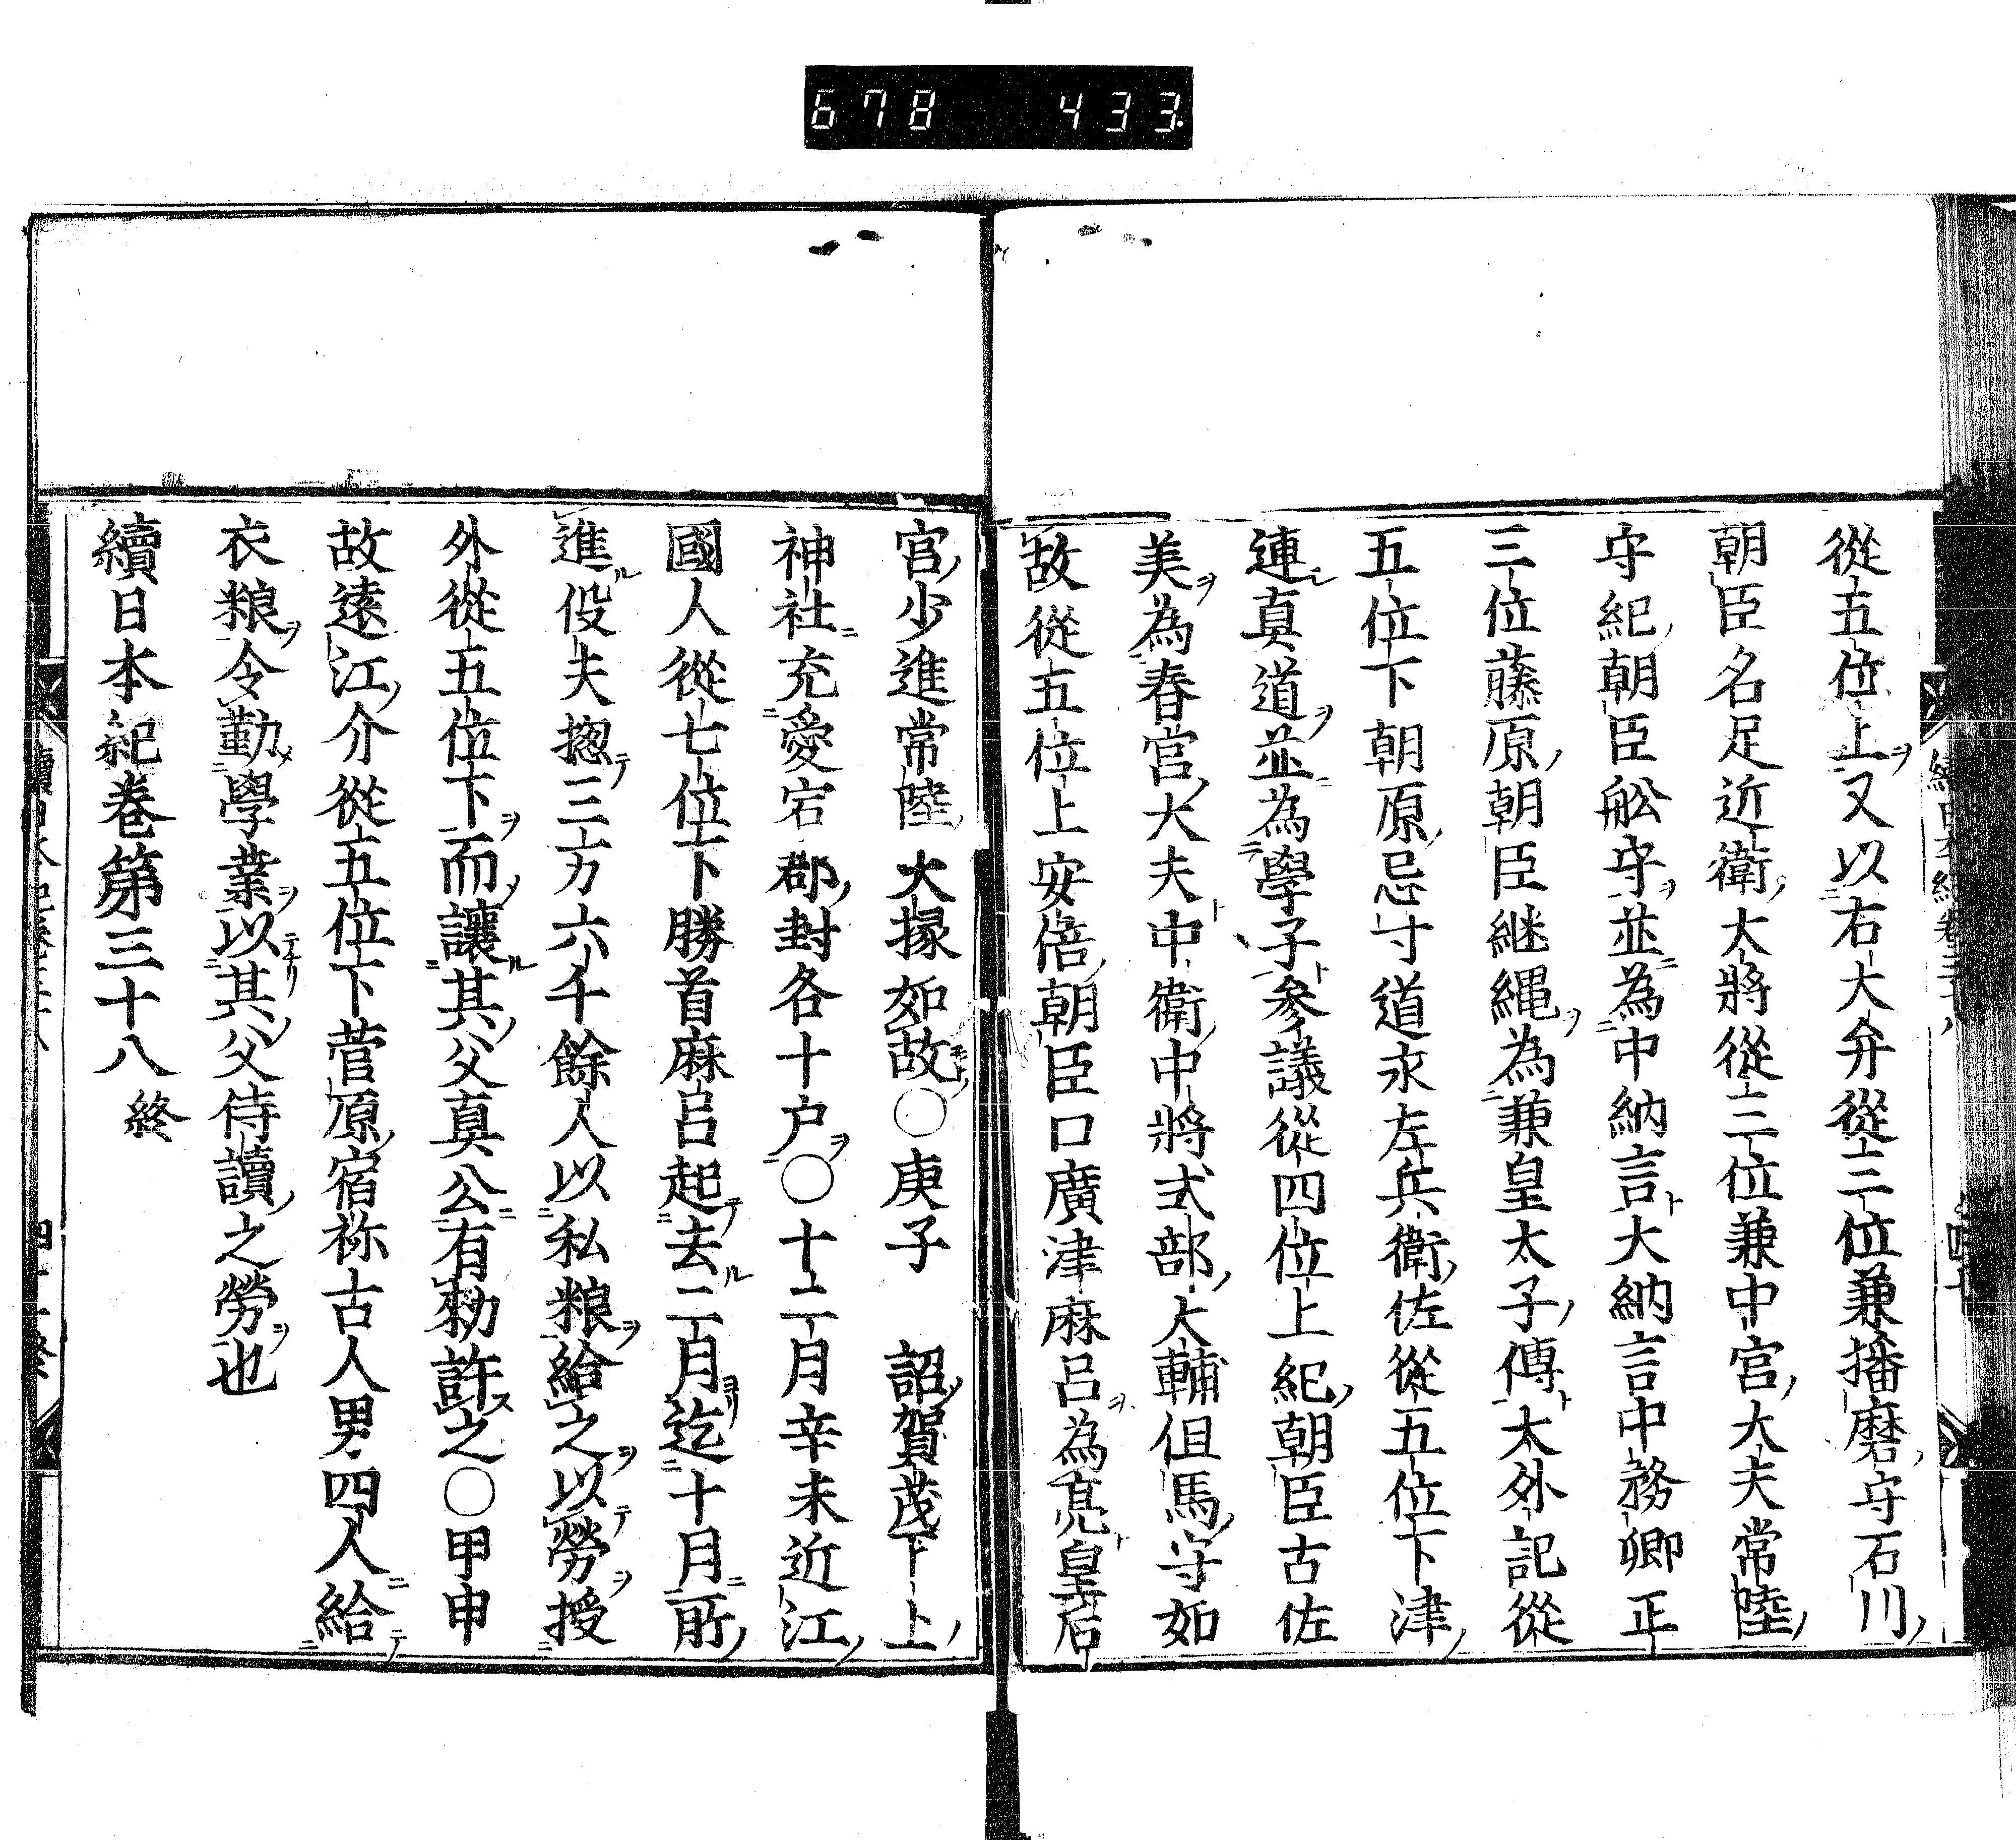 678 433
從五位上又以右大弁從三位兼播磨守石川
朝臣名足近衛大將從三位兼中宮大夫常陸
守紀朝臣舩守並為中納言大納言中務卿正
三位藤原朝臣継縄為兼皇太子傅大外記從
五位下朝原忌寸道永左兵衛佐從五位下津
連真道並為學子參議從四位上紀朝臣古佐
美為春官大夫中衛中將式部大輔但馬守如
故從五位上安倍朝臣口廣津麻呂為亮皇后
官少進常陸大掾如故〇庚子 詔賀茂下上
神社充愛宕郡封各十户〇十二月辛未近江
國人從七位下勝首麻呂起去二月迄十月所
進役夫揔三万六千餘人以私粮給之以勞授
外從五位下而讓其父真公有勑許之〇甲申
故遠江介從五位下菅原宿祢古人男四人給
衣粮令勤學業以其父侍讀之勞也
續日本紀巻第三十八 終